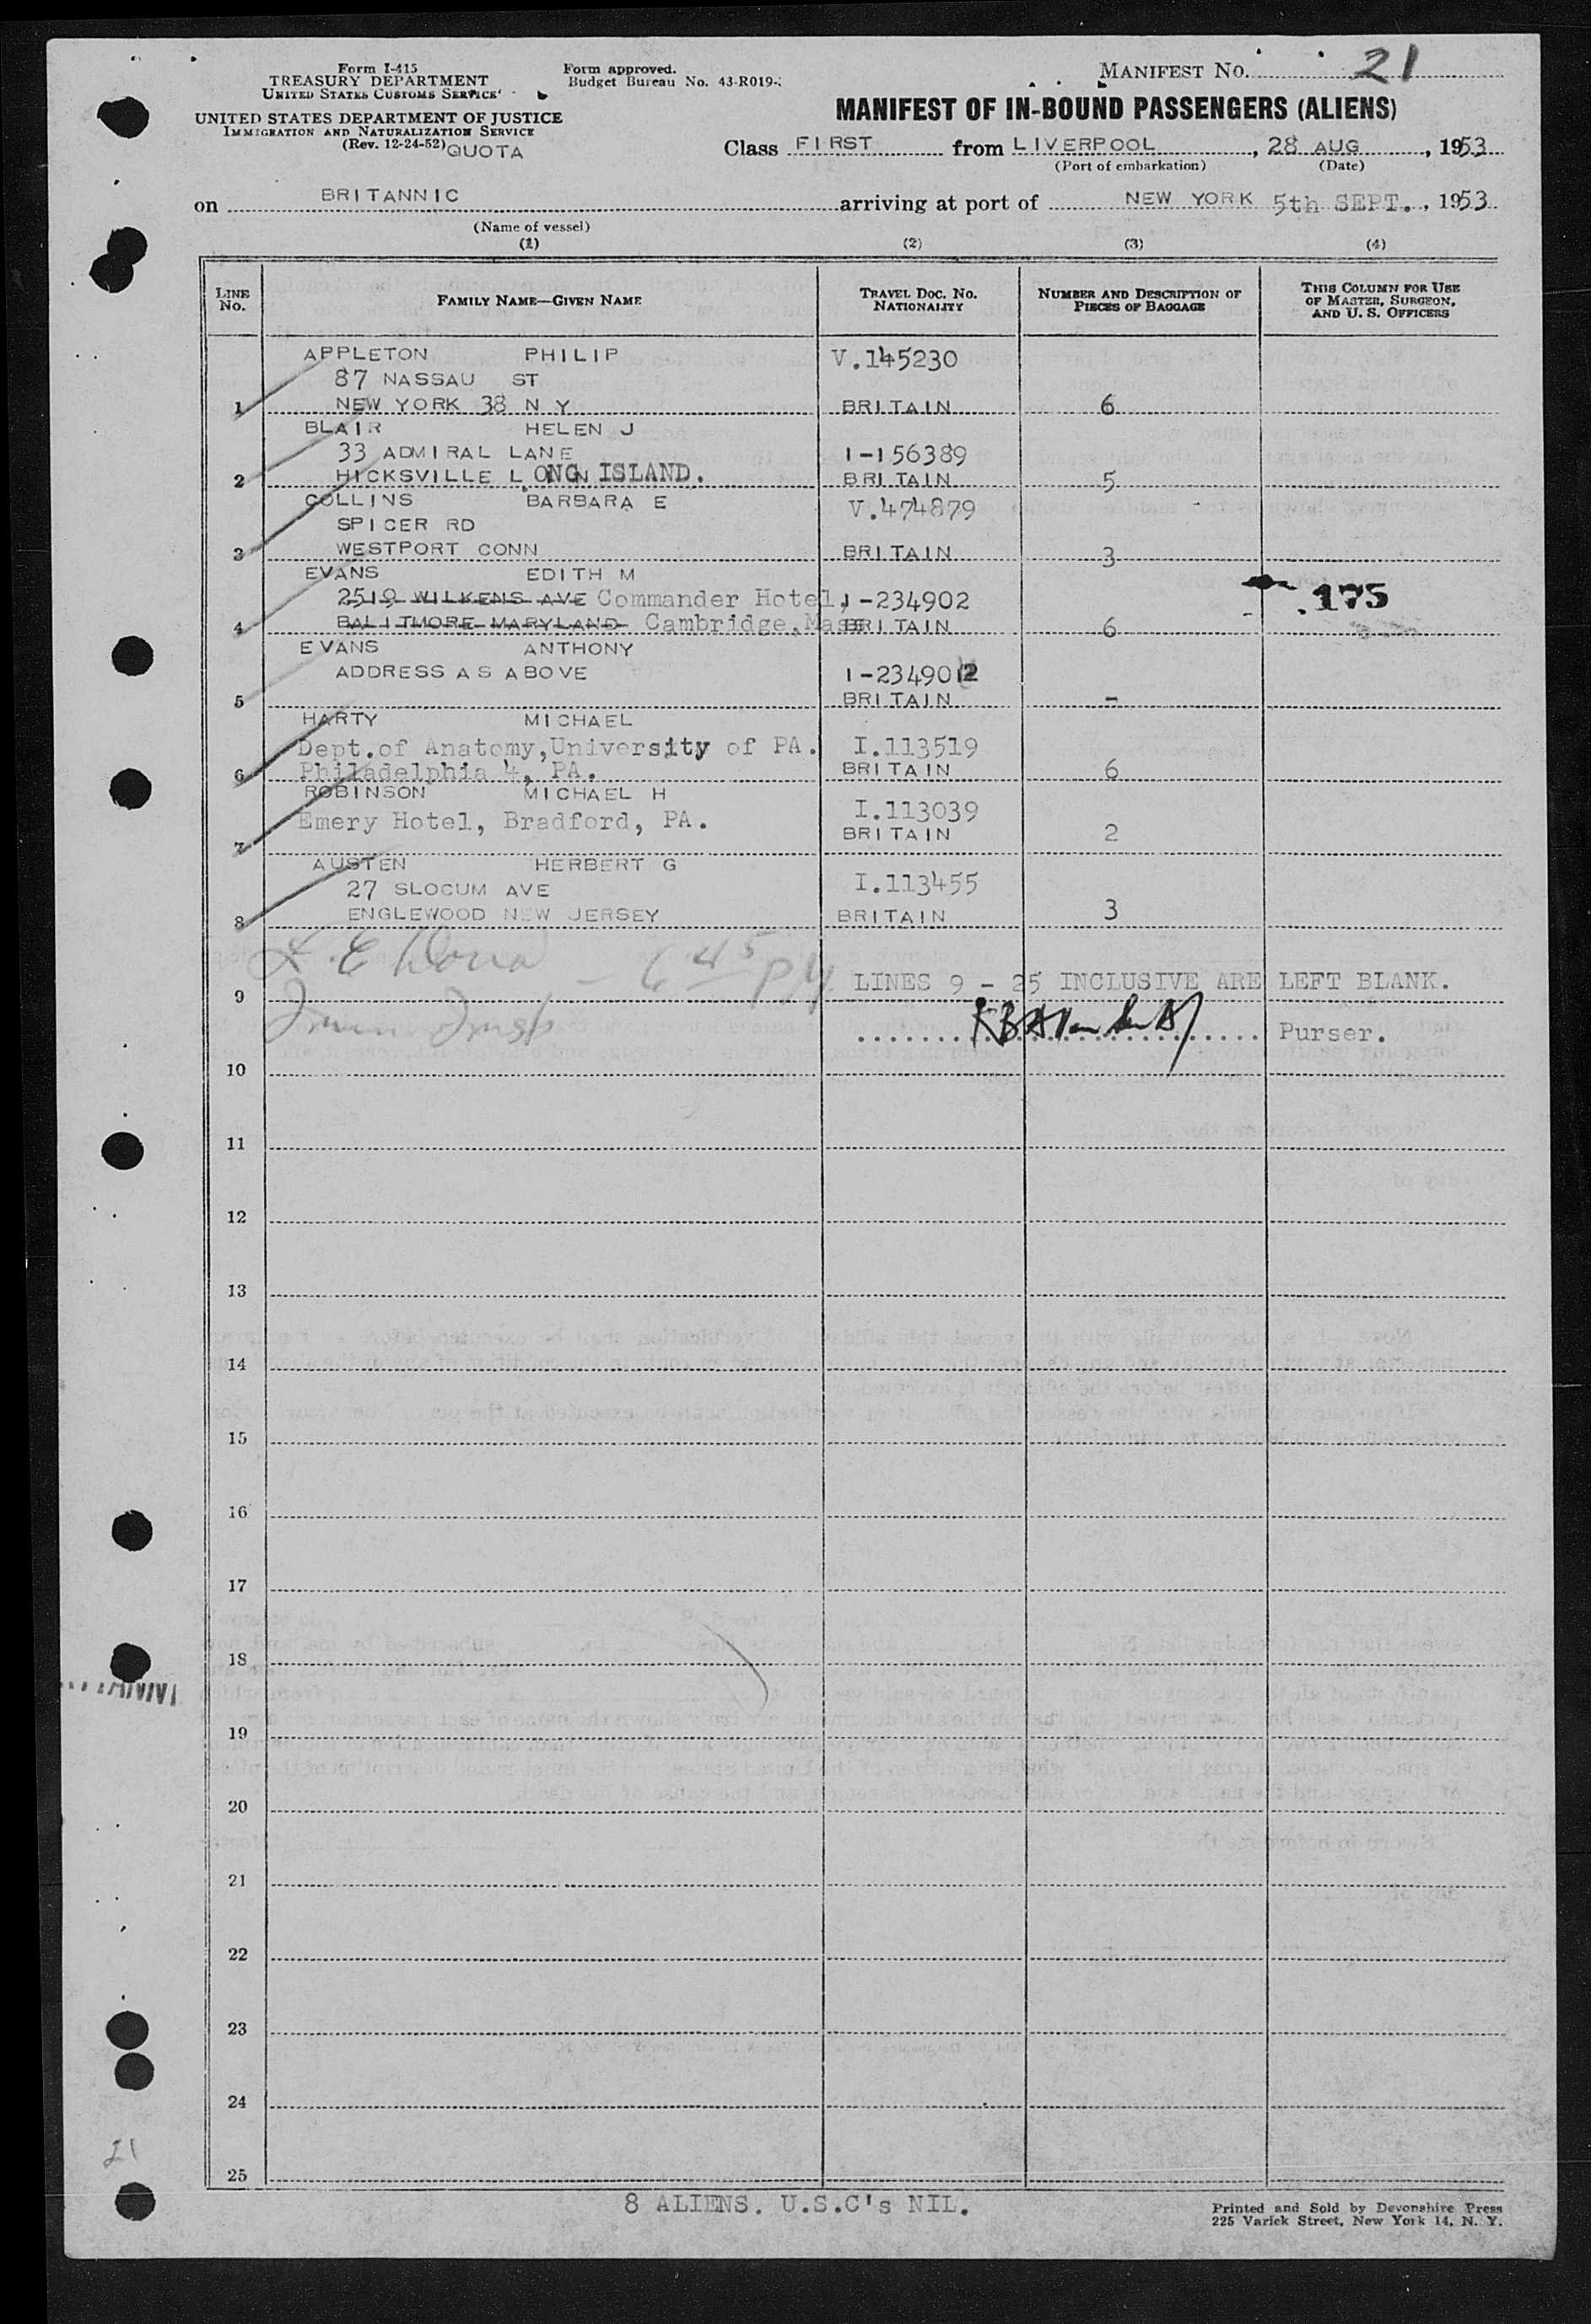 Form I-415
TREASURY DEPARTMENT
UNITED STATES CUSTOMS SERVICE
Form approved.
Budget Bureau No. 43-R019-
UNITED STATES DEPARTMENT OF JUSTICE
IMMIGRATION AND NATURALIZATION SERVICE
(Rev. 12-24-52) QUOTA
MANIFEST NO. 21
MANIFEST OF IN-BOUND PASSENGERS (ALIENS)
Class FIRST from LIVERPOOL, 28 AUG, 1953
(Port of embarkation) (Date)
on BRITANNIC arriving at port of NEW YORK 5th SEPT., 1953
(Name of vessel)
(1) (2) (3) (4)
LINE NO. FAMILY NAME—GIVEN NAME TRAVEL DOC. NO. NATIONALITY NUMBER AND DESCRIPTION OF PIECES OF BAGGAGE THIS COLUMN FOR USE OF MASTER, SURGEON, AND U. S. OFFICERS
APPLETON PHILIP V.145230
87 NASSAU ST
1 NEW YORK 38 N Y BRITAIN 6
BLAIR HELEN J
33 ADMIRAL LANE I-156389
2 HICKSVILLE LONG ISLAND. BRITAIN 5
COLLINS BARBARA E V.474879
SPICER RD
3 WESTPORT CONN BRITAIN 3
EVANS EDITH M
2519 WILKENS AVE Commander Hotel, I-234902 175
4 BALITMORE MARYLAND Cambridge, Mass BRITAIN 6
EVANS ANTHONY
ADDRESS AS ABOVE I-234902
5 BRITAIN -
HARTY MICHAEL
Dept.of Anatomy,University of PA. I.113519
6 Philadelphia 4, PA. BRITAIN 6
ROBINSON MICHAEL H
Emery Hotel, Bradford, PA. I.113039
7 BRITAIN 2
AUSTEN HERBERT G
27 SLOCUM AVE I.113455
8 ENGLEWOOD NEW JERSEY BRITAIN 3
9 LINES 9 - 25 INCLUSIVE ARE LEFT BLANK.
Purser.
10
11
12
13
14
15
16
17
18
19
20
21
22
23
24
21
25
8 ALIENS. U.S.C's NIL.
Printed and Sold by Devonshire Press
225 Varick Street, New York 14, N. Y.